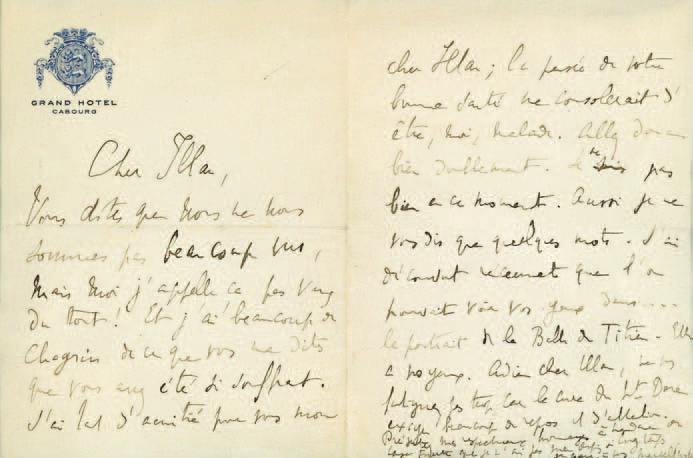 GRAND HOTEL
CABOURG
Cher Illan,
Vous dites que nous ne nous
sommes pas beaucoup vus,
mais moi j'appelle ça pas
du tout ! Et j'ai beaucoup de
chagrin de ce que vous me dites
que vous avez été si souffrant.
J'ai tant d'amitié pour vous mon
cher Illan ; la pensée de votre
bonne santé me consolerait d'
être, moi, malade. Allez donc
bien doublement. Je ne suis pas
bien en ce moment. Aussi je ne
vous dis que quelques mots. J'ai
découvert récemment que l'on
pouvait voir vos yeux dans ....
le portrait de la Bella de Titien. Elle
a vos yeux. Adieu cher Illan, ne vous
fatiguez pas trop, car la cure du Mt Dore
exige beaucoup de repos et d'
mes respectueux hommages à
que je n'ai pas